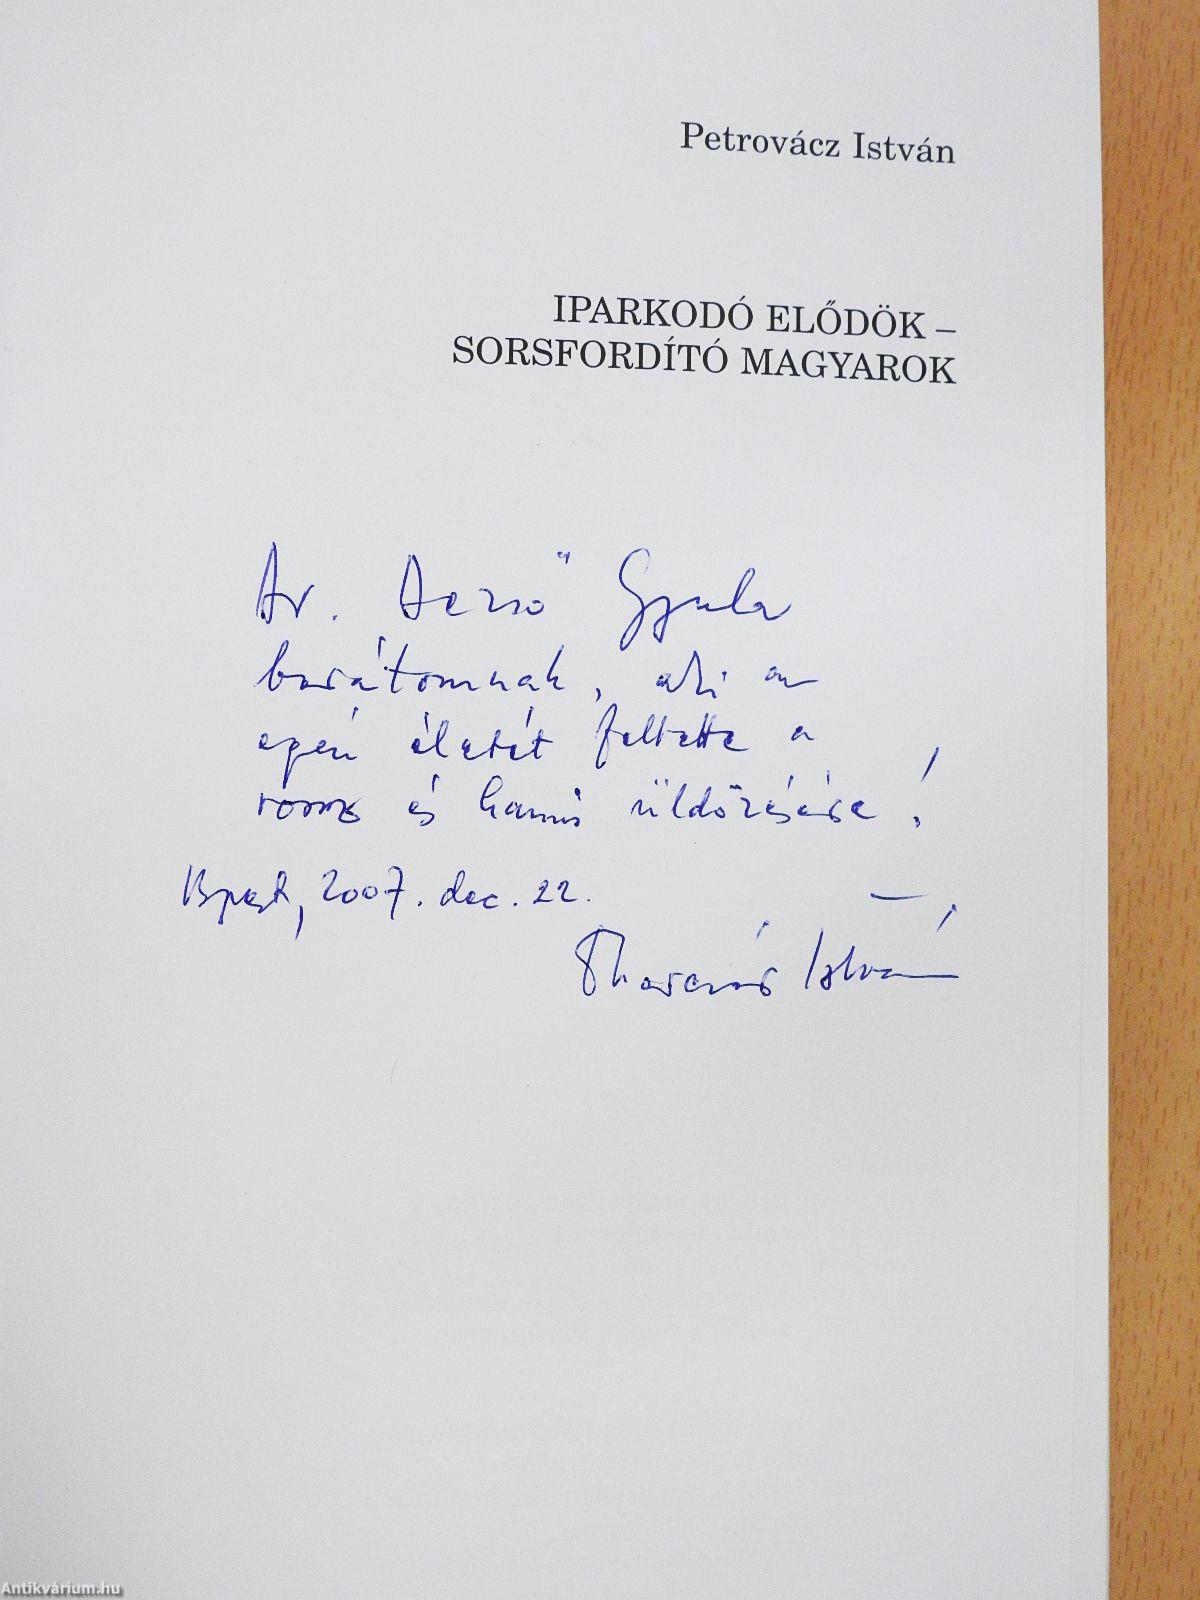 Petrovácz István
IPARKODÓ ELŐDÖK –
SORSFORDÍTÓ MAGYAROK
Dr. Dezső Gyula
barátomnak, aki az
egész életét feltette a
rossz és hamis üldözésére!
Bpest, 2007. dec. 22.
István
Antikvárium.hu